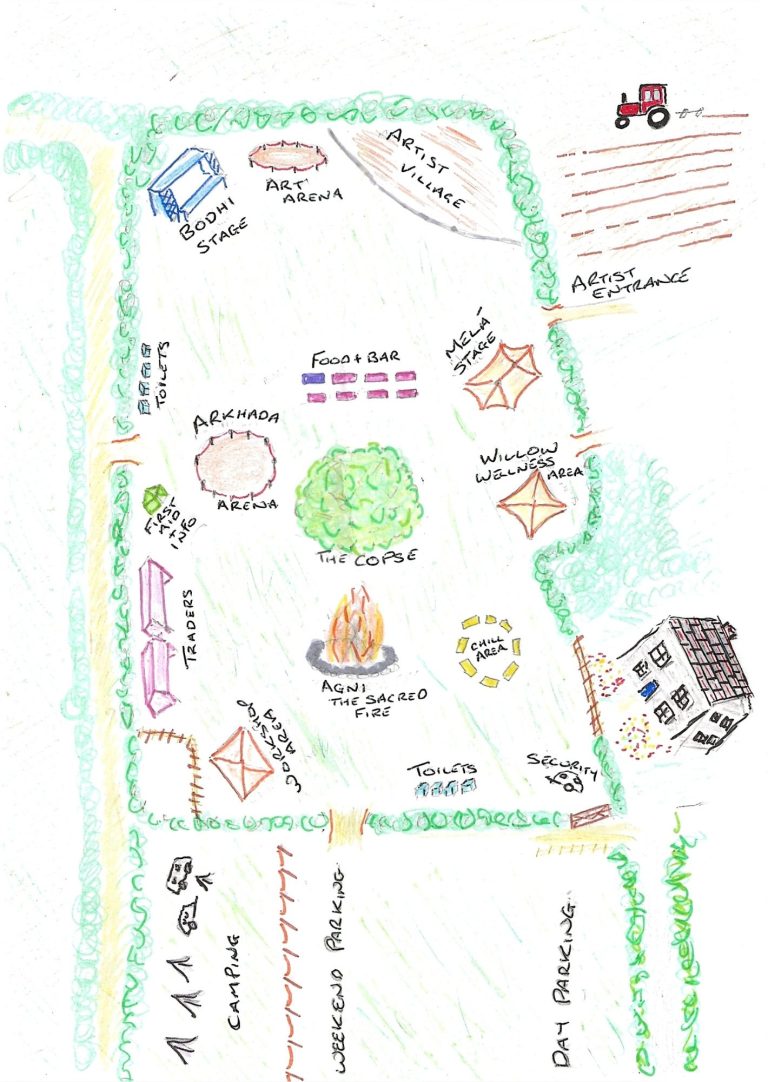 BODHI
STAGE
ART
ARENA
ARTIST
VILLAGE
ARTIST
ENTRANCE
TOILETS
FOOD + BAR
MELÁ
STAGE
ARKHADA
ARENA
WILLOW
WELLNESS
AREA
FIRST
AID
+
INFO
THE COPSE
TRADERS
AGNI
THE SACRED
FIRE
CHILL
AREA
WORKSHOP
AREA
TOILETS
SECURITY
CAMPING
WEEKEND PARKING
DAY PARKING